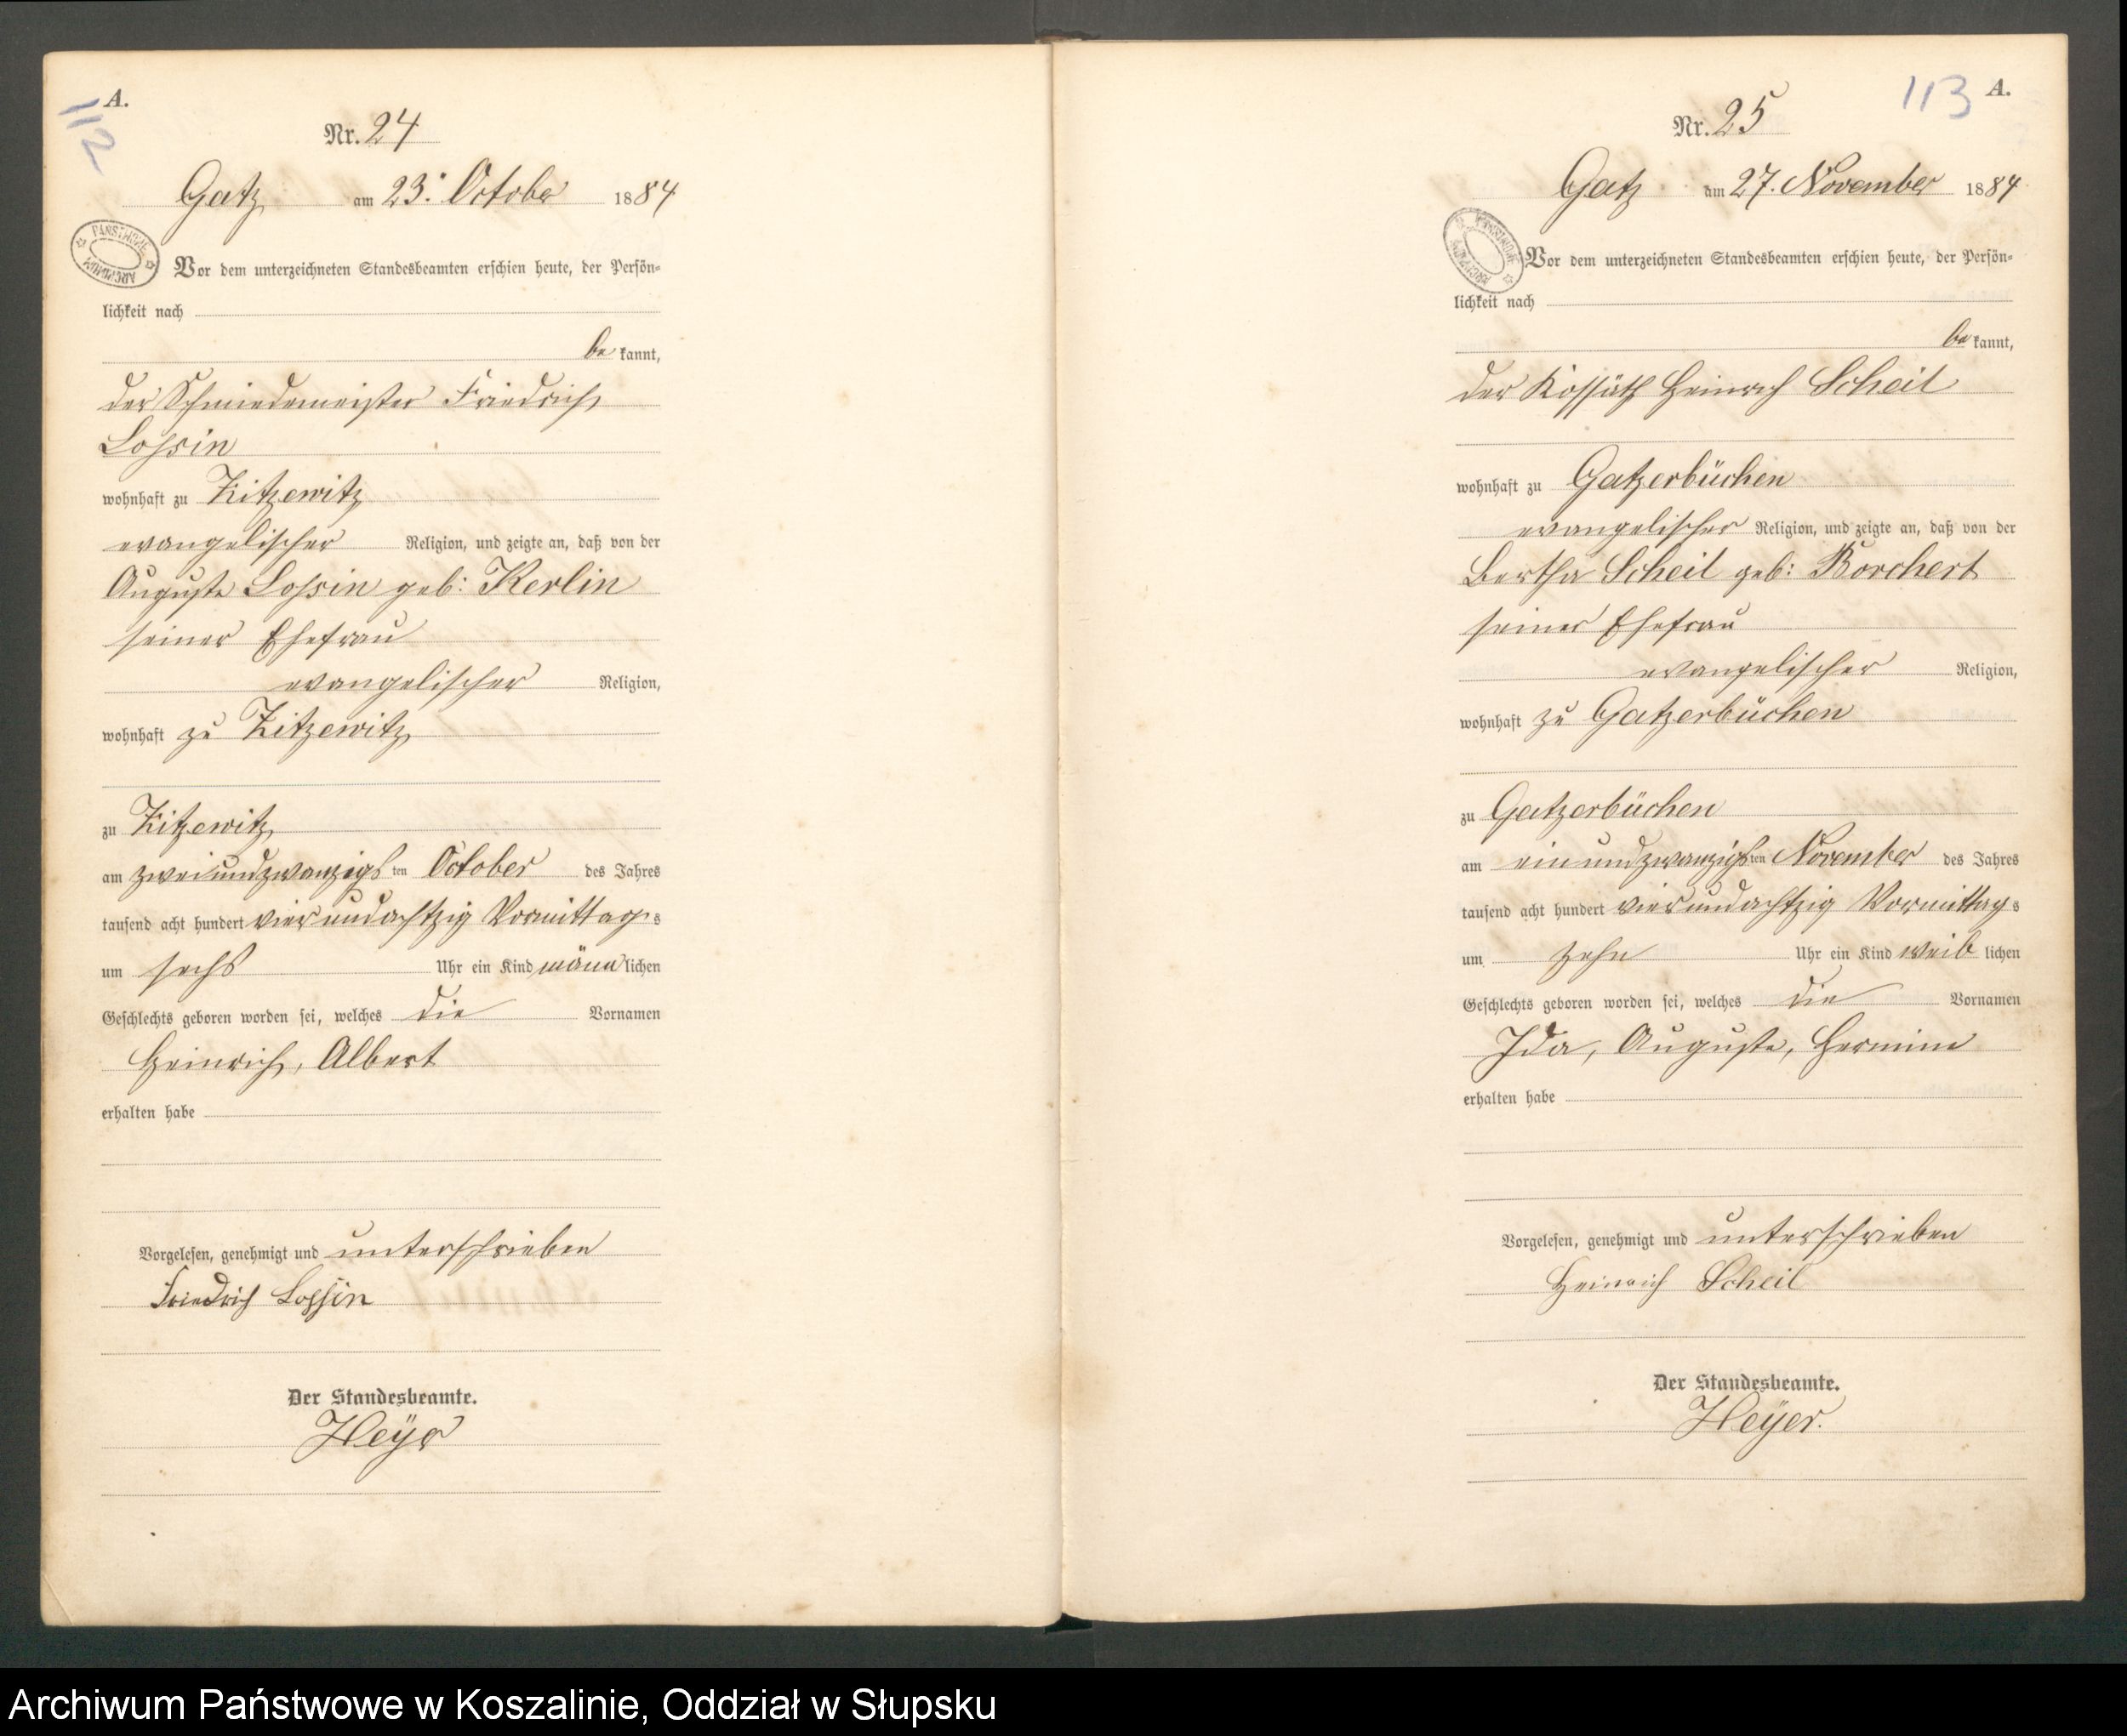 A.
112
Nr. 24
Gatz am 23. October 1884
PAŃSTWOWE ARCHIWUM
Vor dem unterzeichneten Standesbeamten erschien heute, der Persön-
lichkeit nach
be kannt,
der Schmiedemeister Friedrich
Lossin
wohnhaft zu Zitzewitz
evangelischer Religion, und zeigte an, daß von der
Auguste Lossin geb: Kerlin
seiner Ehefrau
evangelischer Religion,
wohnhaft zu Zitzewitz
zu Zitzewitz
am zweiundzwanzigs ten October des Jahres
tausend acht hundert vierundachtzig Vormittags
um sechs Uhr ein Kind männlichen
Geschlechts geboren worden sei, welches die Vornamen
Heinrich, Albert
erhalten habe
Vorgelesen, genehmigt und unterschrieben
Friedrich Lossin
Der Standesbeamte.
Heyer
113 A.
Nr. 25
Gatz am 27. November 1884
PAŃSTWOWE ARCHIWUM
Vor dem unterzeichneten Standesbeamten erschien heute, der Persön-
lichkeit nach
be kannt,
der Kossäth Heinrich Scheil
wohnhaft zu Gatzerbüchen
evangelischer Religion, und zeigte an, daß von der
Bertha Scheil geb: Borchert
seiner Ehefrau
evangelischer Religion,
wohnhaft zu Gatzerbüchen
zu Gatzerbüchen
am einundzwanzigsten November des Jahres
tausend acht hundert vierundachtzig Vormittags
um zehn Uhr ein Kind weiblichen
Geschlechts geboren worden sei, welches die Vornamen
Ida, Auguste, Hermine
erhalten habe
Vorgelesen, genehmigt und unterschrieben
Heinrich Scheil
Der Standesbeamte.
Heÿer.
Archiwum Państwowe w Koszalinie, Oddział w Słupsku